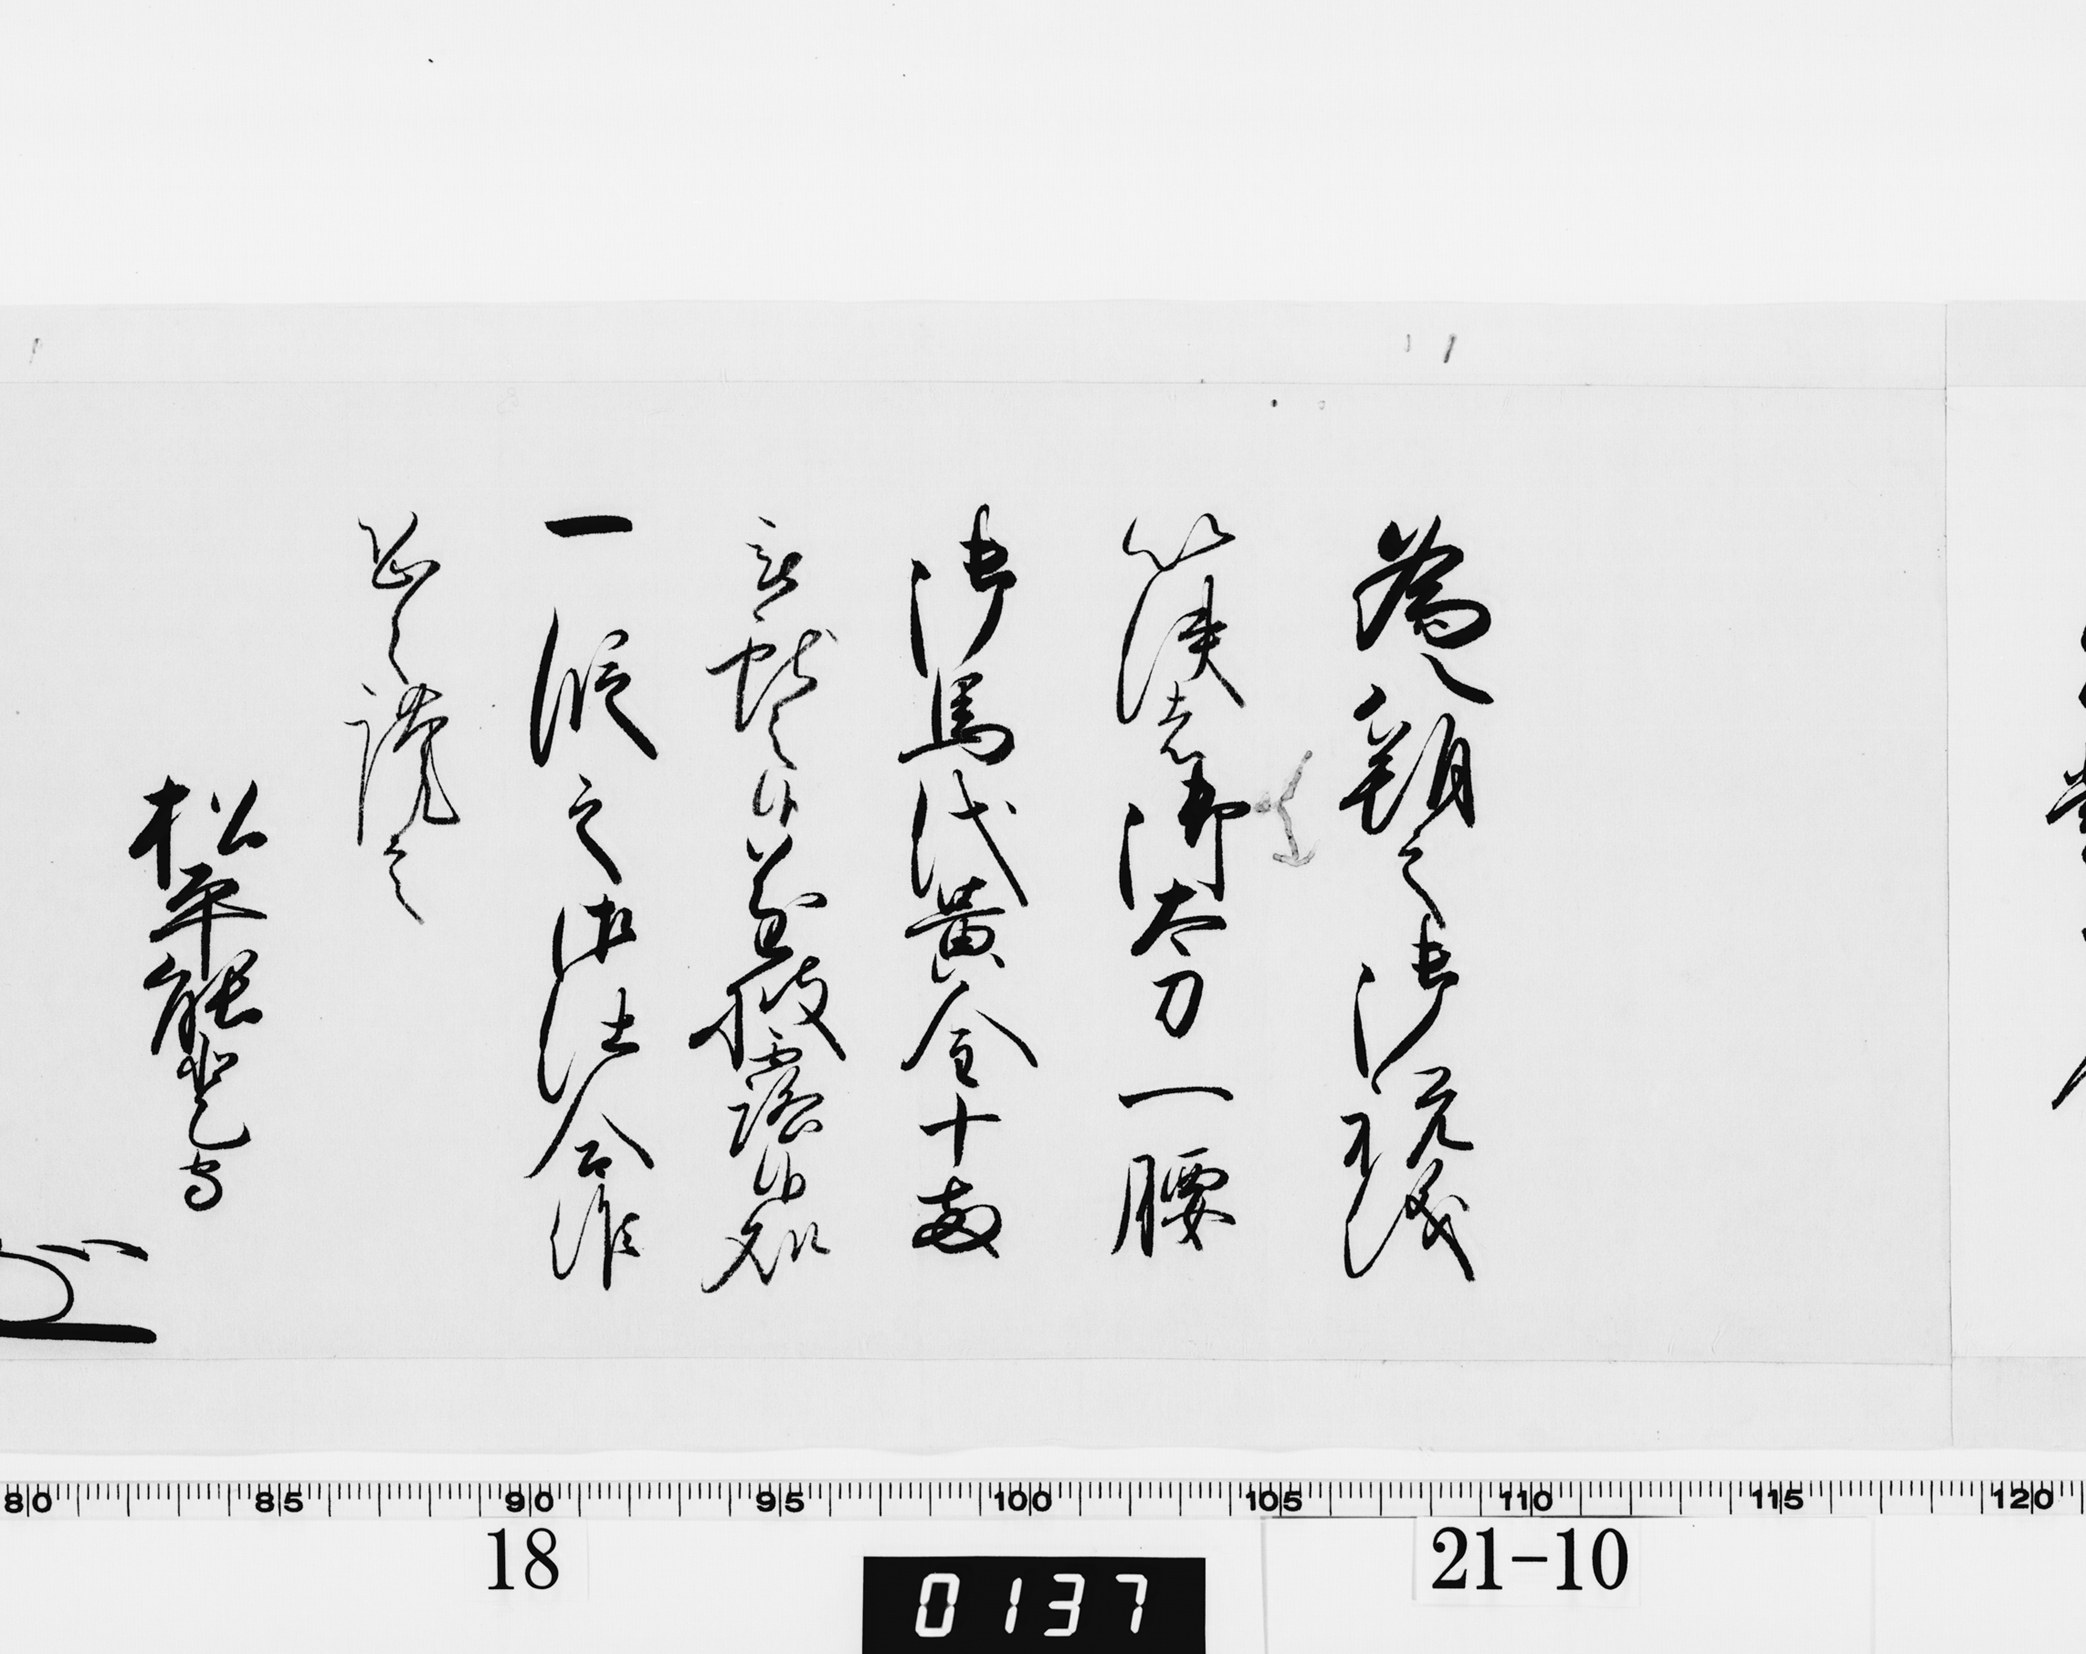 為八朔之御祝儀
御太刀一腰
御馬代黄金十両
献之候 披露候処
一段之御仕合
恐々謹言
松平能登守
80 85 90 95 100 105 110 115 120
18
21-10
0137